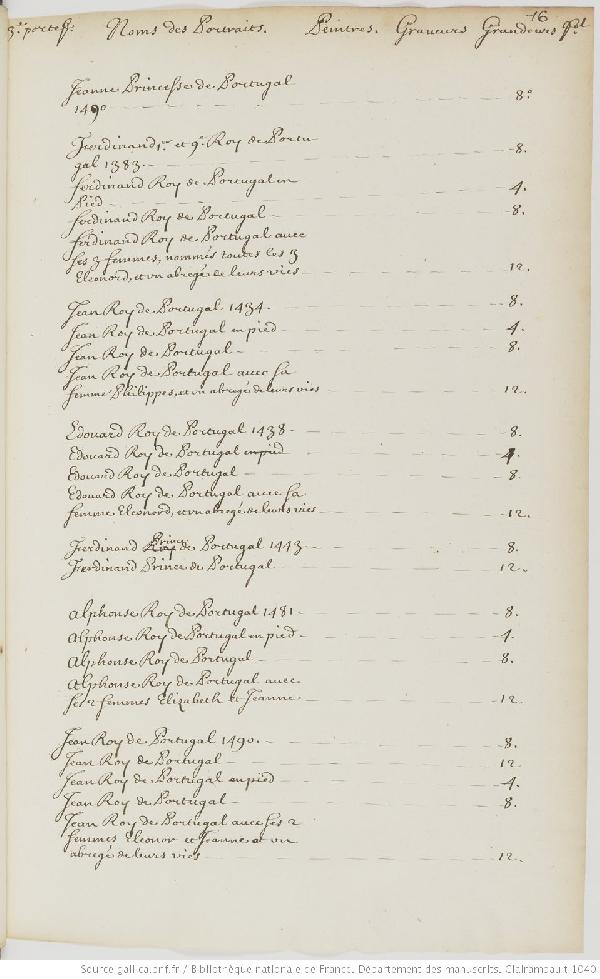 16
3.e portef. Noms des Portraits. Peintres. Graveurs Grandeurs
Jeanne Princesse de Portugal
1490 8.o
Ferdinand 1.er et 9.e Roy de Portu
gal 1383. 8.
Ferdinand Roy de Portugal en
Pied 4.
Ferdinand Roy de Portugal 8.
Ferdinand Roy de Portugal avec
ses 3 femmes, nommés toutes les 3
Eleonord, et un abregé de leurs vies 12.
Jean Roy de Portugal 1434. 8.
Jean Roy de Portugal en pied 4.
Jean Roy de Portugal 8.
Jean Roy de Portugal avec sa
femme Philippes, et un abregé de leurs vies 12.
Edouard Roy de Portugal 1438 8.
Edouard Roy de Portugal en pied 4.
Edouard Roy de Portugal 8.
Edouard Roy de Portugal avec sa
femme Eleonord, et un abregé de leurs vies 12.
Ferdinand Prince de Portugal 1443 8.
Ferdinand Prince de Portugal 12.
Alphonse Roy de Portugal 1481 8.
Alphonse Roy de Portugal en pied 4.
Alphonse Roy de Portugal 8.
Alphonse Roy de Portugal avec
ses 2 femmes Elizabeth et Jeanne 12.
Jean Roy de Portugal 1490. 8.
Jean Roy de Portugal 12.
Jean Roy de Portugal en pied 4.
Jean Roy de Portugal 8.
Jean Roy de Portugal avec ses 2
femmes Eleonor et Jeanne et un
abregé de leurs vies 12.
Source gallica.bnf.fr / Bibliothèque nationale de France. Département des manuscrits. Clairambault 1040